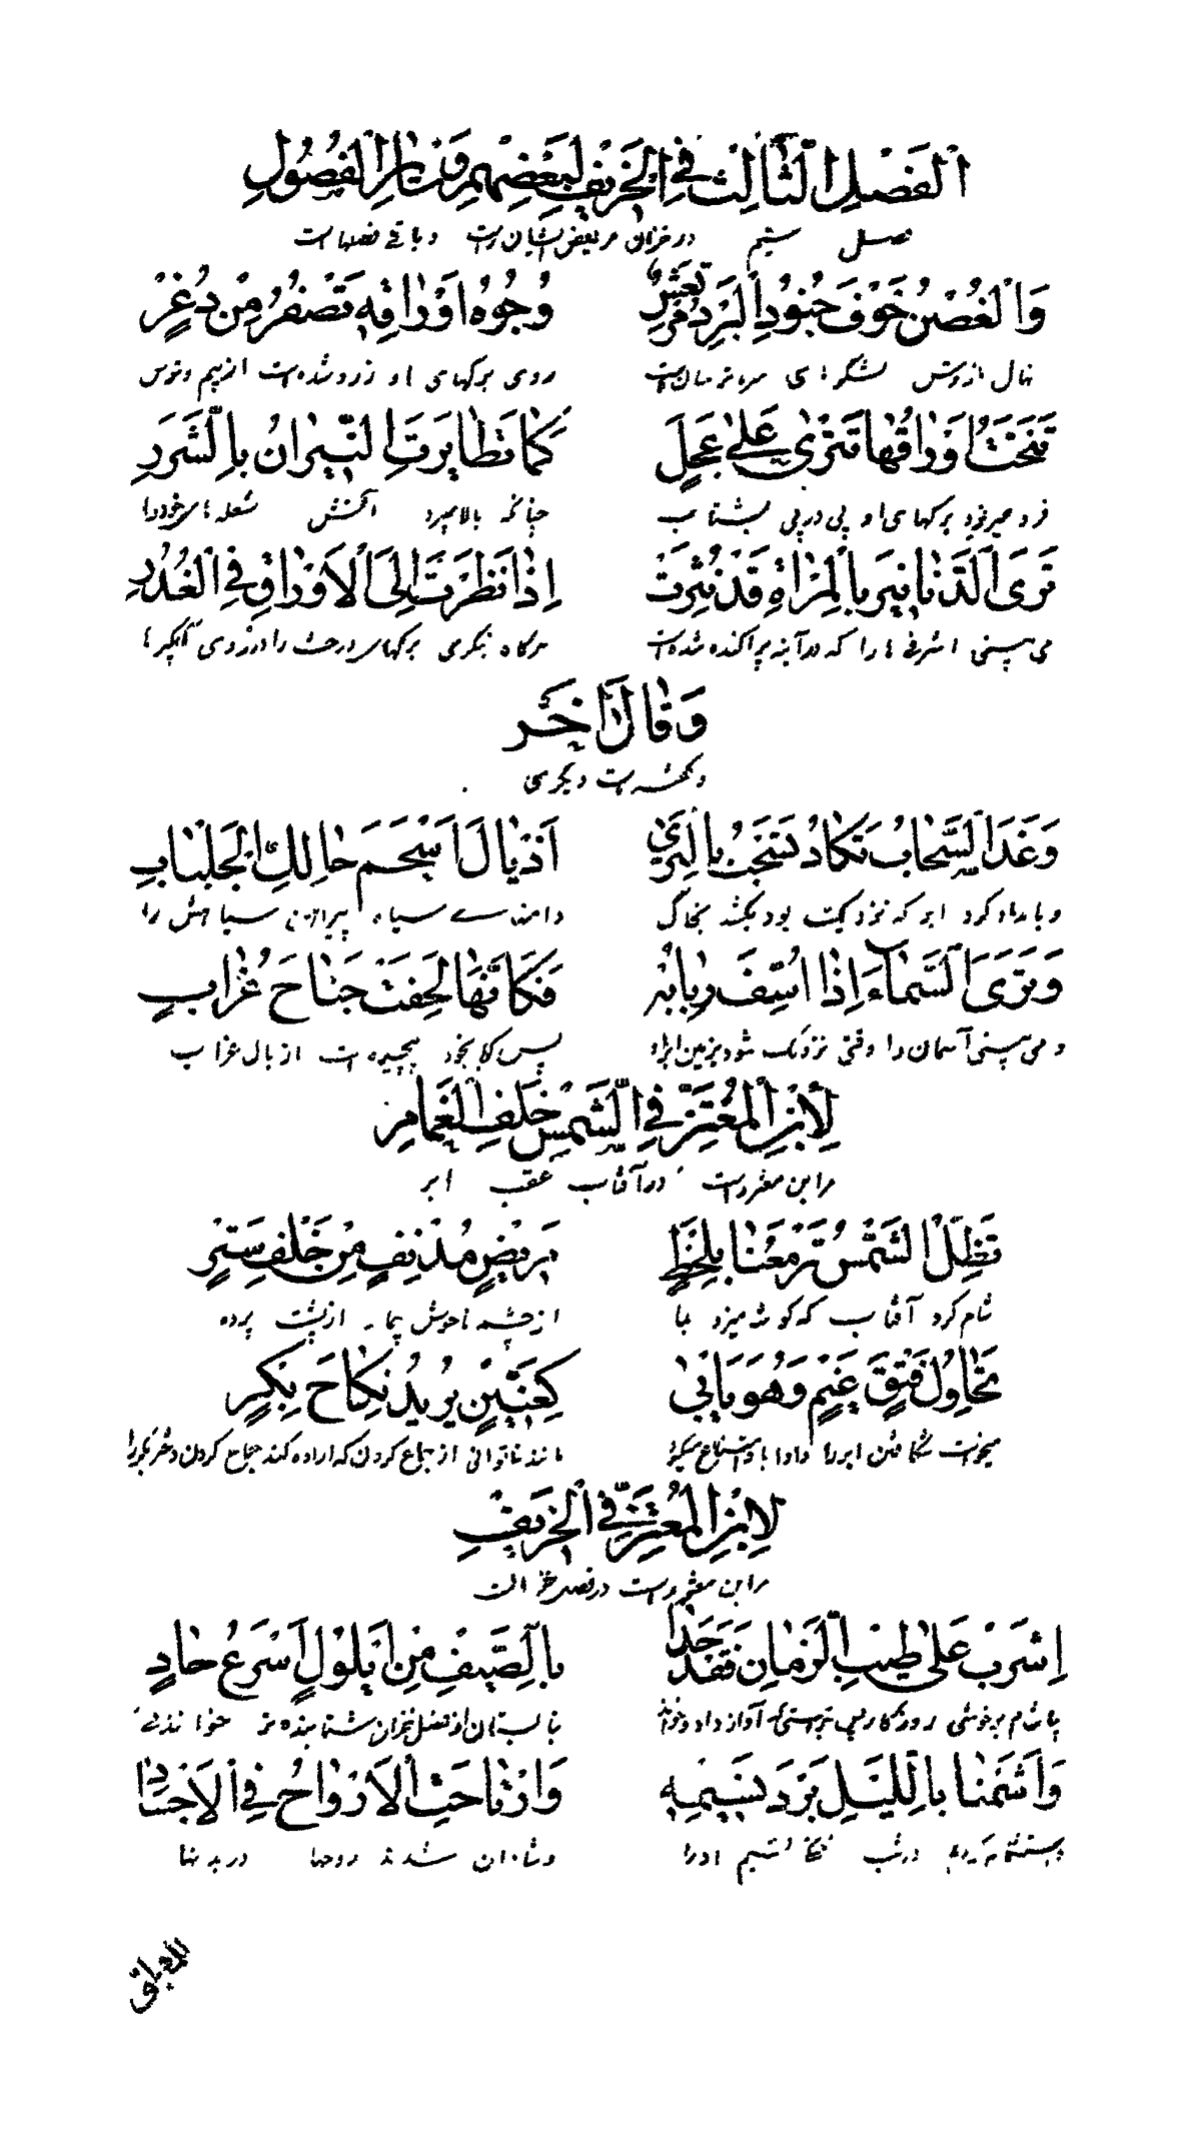 اَلْفَصْلُ الثَّالِثُ فِي الْخَرِيفِ لِبَعْضِهِمْ وَسَائِرِ الْفُصُولِ
فصل سیم در خزان مر بعض ایشان راست و باقی فصلهاست
وَالْغُصْنُ خَوْفَ جُنُودِ الْبَرْدِ مُرْتَعِشٌ وُجُوهُ اَوْرَاقِهِ تَصْفَرُّ مِنْ ذُعْرٍ
نهال از ترس لشگرهای سرما ترسان است روی برگهای او زرد شده است از بیم و ترس
اَوْرَاقُهَا تَتْرٰى عَلٰى عَجَلٍ كَمَا تَطَايَرَتِ النِّيرَانُ بِالشَّرَرِ
فرو میریزد برگهای او پی در پی بشتاب چنانکه بالا میپرد آتش
تَرَى الدَّنَانِيرَ بِالْمِرْاٰةِ قَدْ نُثِرَتْ اِذَا نَظَرْتَ اِلَى الْاَوْرَاقِ فِي الْغُدُرِ
می بینی اشرفی ها را که در آینه پراکنده شده است هرگاه بنگری برگهای درخت را در روی آبگیرها
وَقَالَ اٰخَر
و گفته است دیگری
وَغَدَا السَّحَابُ تَكَادُ تَسْحَبُ بِالثَّرٰى اَذْيَالَ اَسْحَمَ حَالِكِ الْجِلْبَابِ
و بامداد کرد ابر که نزدیک بود بکشد بخاک دامنهای سیاه پیراهن سیاهش را
وَتَرَى السَّمَاءَ اِذَا اَسَفَّ رَبَابُهُ فَكَاَنَّهَا لُحِفَتْ جَنَاحَ غُرَابٍ
و می بینی آسمان را وقتی نزدیک شود بزمین ابر او پس گویا بخود پیچیده است از بال غراب
لِابْنِ الْمُعْتَزِّ فِي الشَّمْسِ خَلْفَ الْغَمَامِ
مر ابن معتز راست در آفتاب عقب ابر
تَظَلُّ الشَّمْسُ تَرْمُقُنَا بِلَحْظٍ مَرِيضٍ مُدْنِفٍ مِنْ خَلْفِ سِتْرٍ
شام کرد آفتاب که گوشه میزد با از چشم ناخوش بیمار از پشت پرده
تُحَاوِلُ فَتْقَ غَيْمٍ وَهُوَ يَاْبٰى كَعِنِّينٍ يُرِيدُ نِكَاحَ بِكْرٍ
میخواست شکافتن ابر را مانند ناتوانی از جماع کردن که اراده کند جماع کردن دختر بکر را
لِابْنِ الْمُعْتَزِّ فِي الْخَرِيفِ
مر ابن معتز راست در فصل خزان
اِشْرَبْ عَلٰى طِيبِ الزَّمَانِ فَقَدْ حَدَا بِالصَّيْفِ مِنْ اَيْلُولٍ اَسْرَعُ حَادٍ
بیاشام بر خوشی روزگار
وَاَشَمَّنَا بِاللَّيْلِ بَرْدَ نَسِيمِهِ وَارْتَاحَتِ الْاَرْوَاحُ فِي الْاَجْسَادِ
در شب نسیم او را و شادان شدند روحها در بدنها